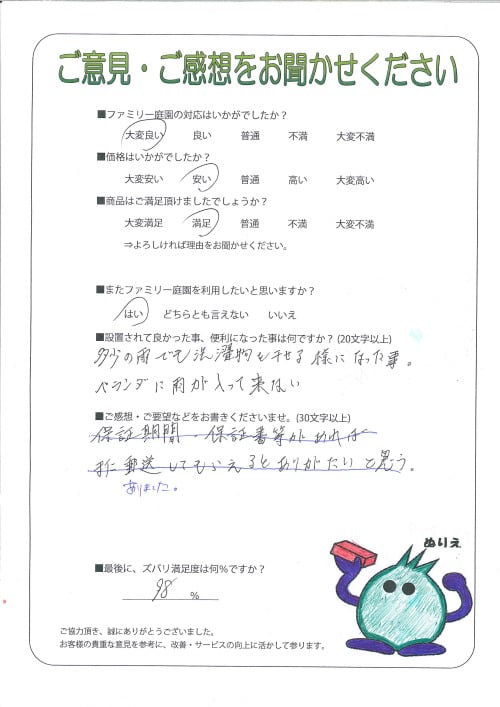 ご意見・ご感想をお聞かせください
■ファミリー庭園の対応はいかがでしたか？
大変良い 良い 普通 不満 大変不満
■価格はいかがでしたか？
大変安い 安い 普通 高い 大変高い
■商品はご満足頂けましたでしょうか？
大変満足 満足 普通 不満 大変不満
⇒よろしければ理由をお聞かせください。
■またファミリー庭園を利用したいと思いますか？
はい どちらとも言えない いいえ
■設置されて良かった事、便利になった事は何ですか？(20文字以上)
多少の雨でも洗濯物を干せる様になった事。
ベランダに雨が入って来ない
■ご感想・ご要望などをお書きくださいませ。(30文字以上)
保証期間・保証書等があれば
郵送してもらえるとありがたいと思う。
ありました。
ぬりえ
■最後に、ズバリ満足度は何％ですか？
98 %
ご協力頂き、誠にありがとうございました。
お客様の貴重な意見を参考に、改善・サービスの向上に活かして参ります。